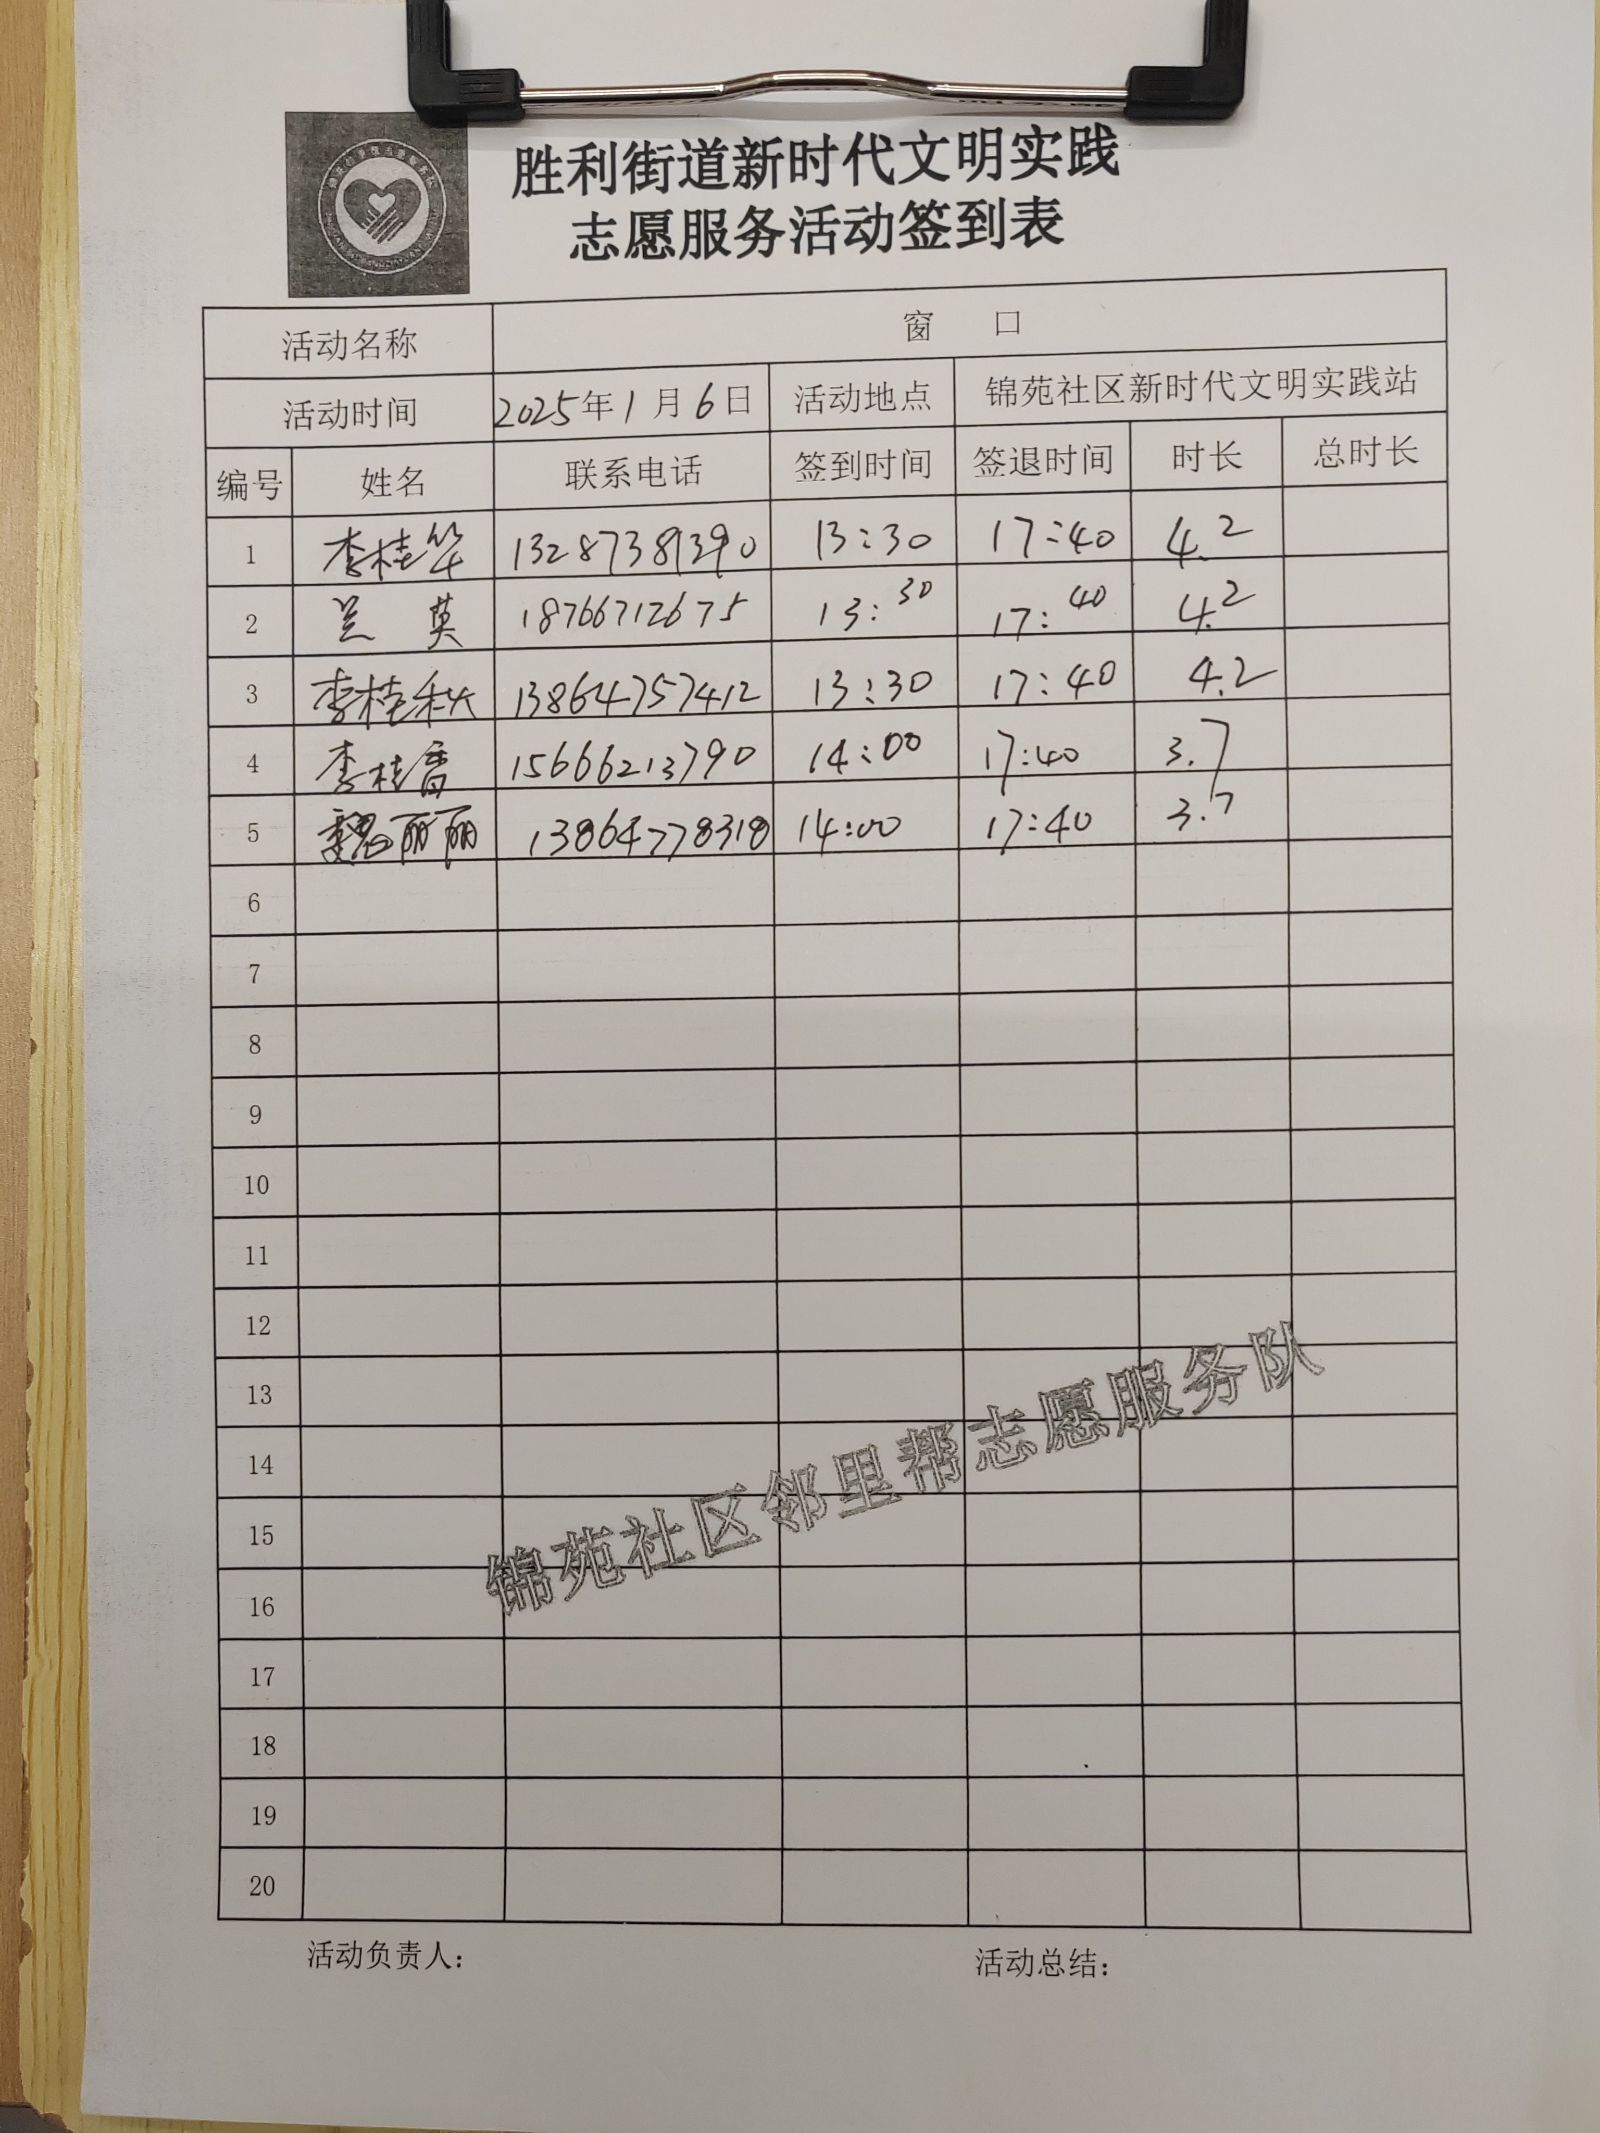 胜利街道新时代文明实践
志愿服务活动签到表
活动名称 窗 口
活动时间 2025年1月6日 活动地点 锦苑社区新时代文明实践站
编号 姓名 联系电话 签到时间 签退时间 时长 总时长
1 李桂华 13287389390 13:30 17:40 4.2
2 兰英 18766712675 13:30 17:40 4.2
3 李桂秋 13864757412 13:30 17:40 4.2
4 李桂香 15666213790 14:00 17:40 3.7
5 魏丽丽 13864778318 14:00 17:40 3.7
6
7
8
9
10
11
12
13
14
15
16
17
18
19
20
锦苑社区邻里帮志愿服务队
活动负责人: 活动总结: